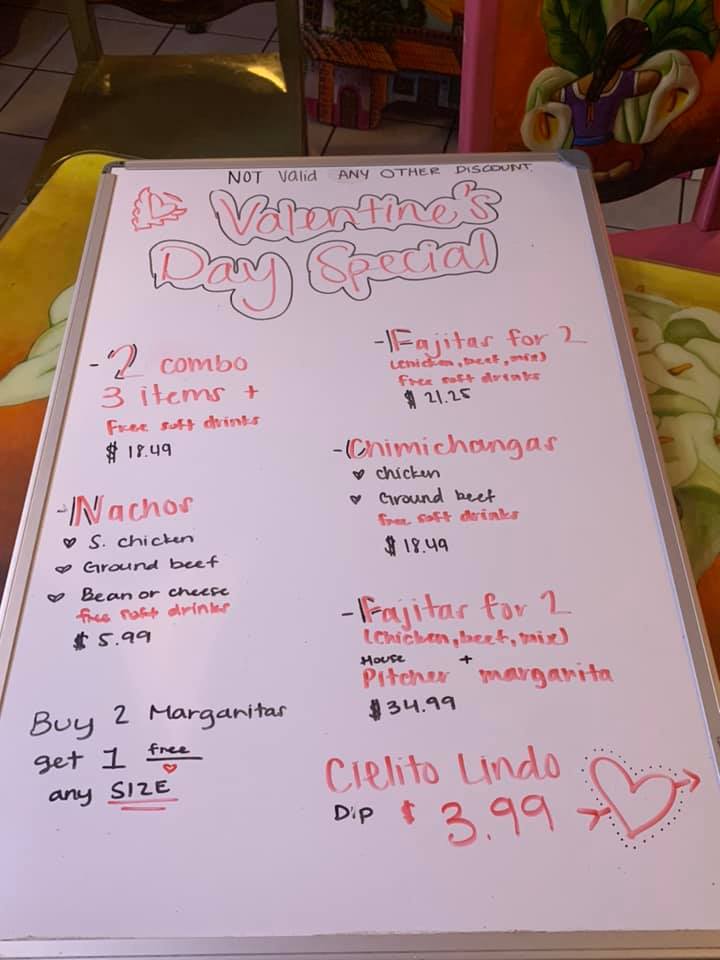 NOT Valid ANY OTHER DISCOUNT
Valentine's
Day Special
- 2 combo
3 items +
Free soft drinks
$ 18.49
- Nachos
S. chicken
Ground beef
Bean or cheese
free soft drinks
$ 5.99
Buy 2 Margaritas
get 1 free
any SIZE
- Fajitas for 2
(chicken, beef, mix)
free soft drinks
$ 21.25
- Chimichangas
chicken
Ground beef
free soft drinks
$ 18.49
- Fajitas for 2
(chicken, beef, mix)
House +
Pitcher margarita
$34.99
Cielito Lindo
Dip $ 3.99